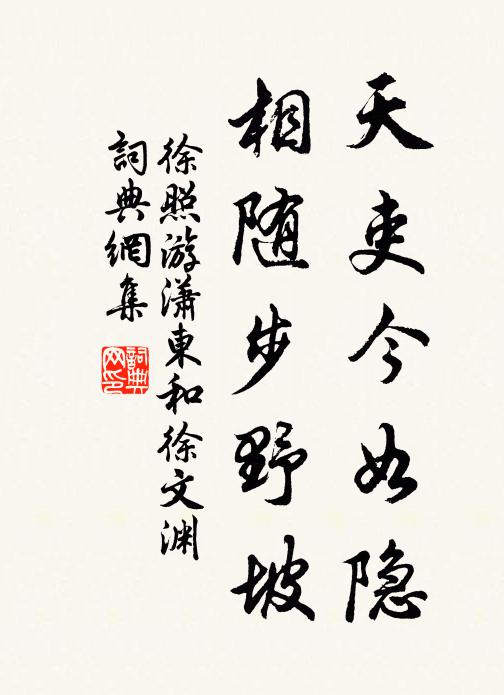 天吏今如隐
相随步野坡
徐照游瀟東和徐文渊
詞典網集
詞典网印